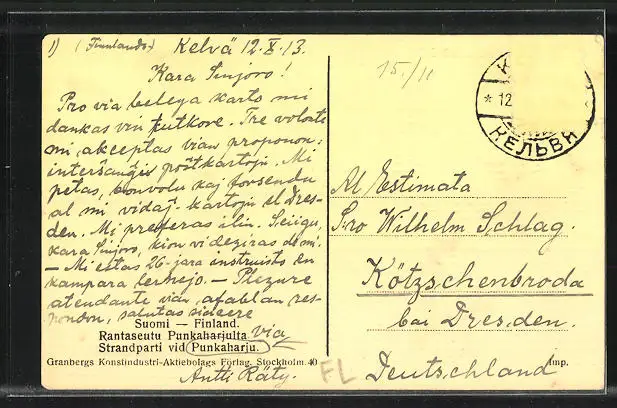 1) (Finnlando) Kelvä 12.X.13.
Kara Sinjoro!
Pro via belega karto mi
dankas vin tutkore. Tre volonte
mi akceptas vian proponon:
interŝanĝi poŝtkartojn. Mi
petas, bonvolu kaj forsendu
al mi vidaj-kartojn el Dres-
den. Mi preferas ilin. Sciigu,
kara Sinjoro, kion vi deziras de mi.
— Mi estas 26-jara instruisto en
kampara lernejo. — Plezure
atendante vian afablan res-
pondon, salutas sincere
via
Antti Räty.
Suomi — Finland.
Rantaseutu Punkaharjulta
Strandparti vid Punkaharju.
Granbergs Konstindustri-Aktiebolags Förlag, Stockholm. 40
Imp.
15./11
* 12
КЕЛЬВЯ
Al Estimata
S-ro Wilhelm Schlag.
Kötzschenbroda
bei Dresden.
Deutschland
FL